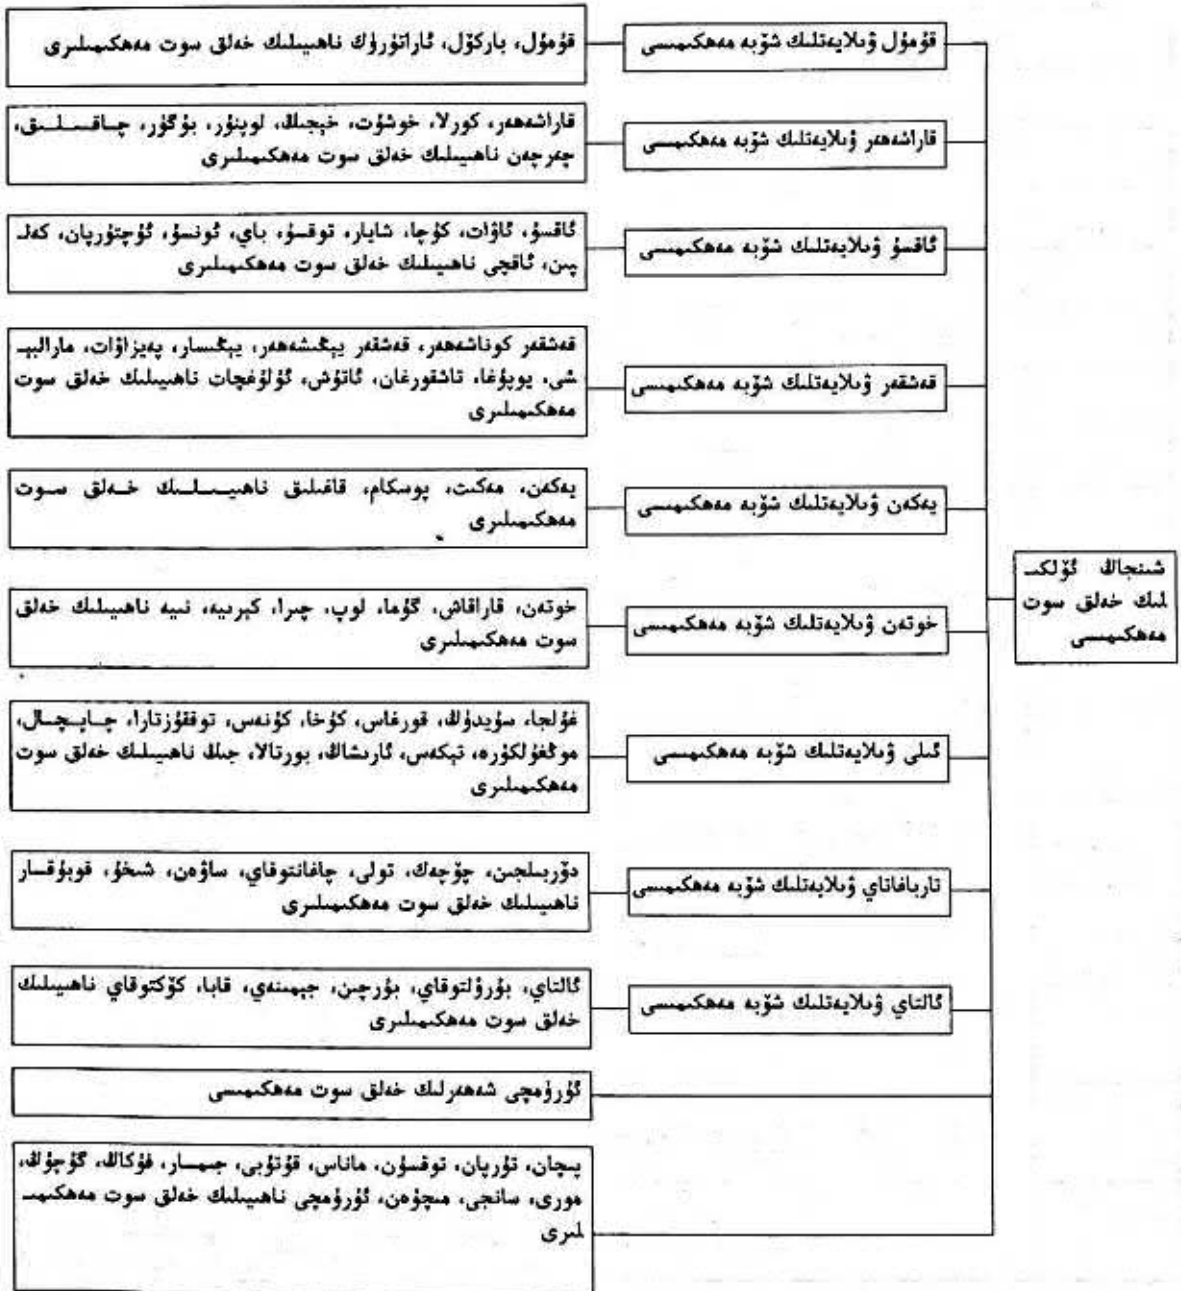 شىنجاڭ ئۆلكى-
لىك خەلق سوت
مەھكىمىسى
قۇمۇل ۋىلايەتلىك شۆبە مەھكىمىسى
قۇمۇل، باركۆل، ئاراتۈرۈك ناھىيىلىك خەلق سوت مەھكىمىلىرى
قاراشەھەر ۋىلايەتلىك شۆبە مەھكىمىسى
قاراشەھەر، كورلا، خوشۇت، خېجىڭ، لوپنۇر، بۈگۈر، چاقىلىق،
چەرچەن ناھىيىلىك خەلق سوت مەھكىمىلىرى
ئاقسۇ ۋىلايەتلىك شۆبە مەھكىمىسى
ئاقسۇ، ئاۋات، كۇچا، شايار، توقسۇ، باي، ئونسۇ، ئۇچتۇرپان، كەل-
پىن، ئاقچى ناھىيىلىك خەلق سوت مەھكىمىلىرى
قەشقەر ۋىلايەتلىك شۆبە مەھكىمىسى
قەشقەر كوناشەھەر، قەشقەر يېڭىشەھەر، يېڭىسار، پەيزاۋات، مارالبې-
شى، يوپۇغا، تاشقورغان، ئاتۇش، ئۇلۇغچات ناھىيىلىك خەلق سوت
مەھكىمىلىرى
يەكەن ۋىلايەتلىك شۆبە مەھكىمىسى
يەكەن، مەكىت، پوسكام، قاغىلىق ناھىيىلىك خەلق سوت
مەھكىمىلىرى
خوتەن ۋىلايەتلىك شۆبە مەھكىمىسى
خوتەن، قاراقاش، گۇما، لوپ، چىرا، كېرىيە، نىيە ناھىيىلىك خەلق
سوت مەھكىمىلىرى
ئىلى ۋىلايەتلىك شۆبە مەھكىمىسى
غۇلجا، سۈيدۈڭ، قورغاس، كۈخا، كۈنەس، توققۇزتارا، چاپچال،
موڭغۇلكۈرە، تېكەس، ئارىشاڭ، بورتالا، جىڭ ناھىيىلىك خەلق سوت
مەھكىمىلىرى
تارباغاتاي ۋىلايەتلىك شۆبە مەھكىمىسى
دۆربىلجىن، چۆچەك، تولى، چاغانتوقاي، ساۋەن، شىخۇ، قوبۇقسار
ناھىيىلىك خەلق سوت مەھكىمىلىرى
ئالتاي ۋىلايەتلىك شۆبە مەھكىمىسى
ئالتاي، بۇرۇلتوقاي، بۇرچىن، جېمىنەي، قابا، كۆكتوقاي ناھىيىلىك
خەلق سوت مەھكىمىلىرى
ئۈرۈمچى شەھەرلىك خەلق سوت مەھكىمىسى
پىچان، تۇرپان، توقسۇن، ماناس، قۇتۇبى، جىمسار، فۇكاڭ، گۇچۇڭ،
مورى، سانجى، مىچۈەن، ئۈرۈمچى ناھىيىلىك خەلق سوت مەھكىمى-
لىرى